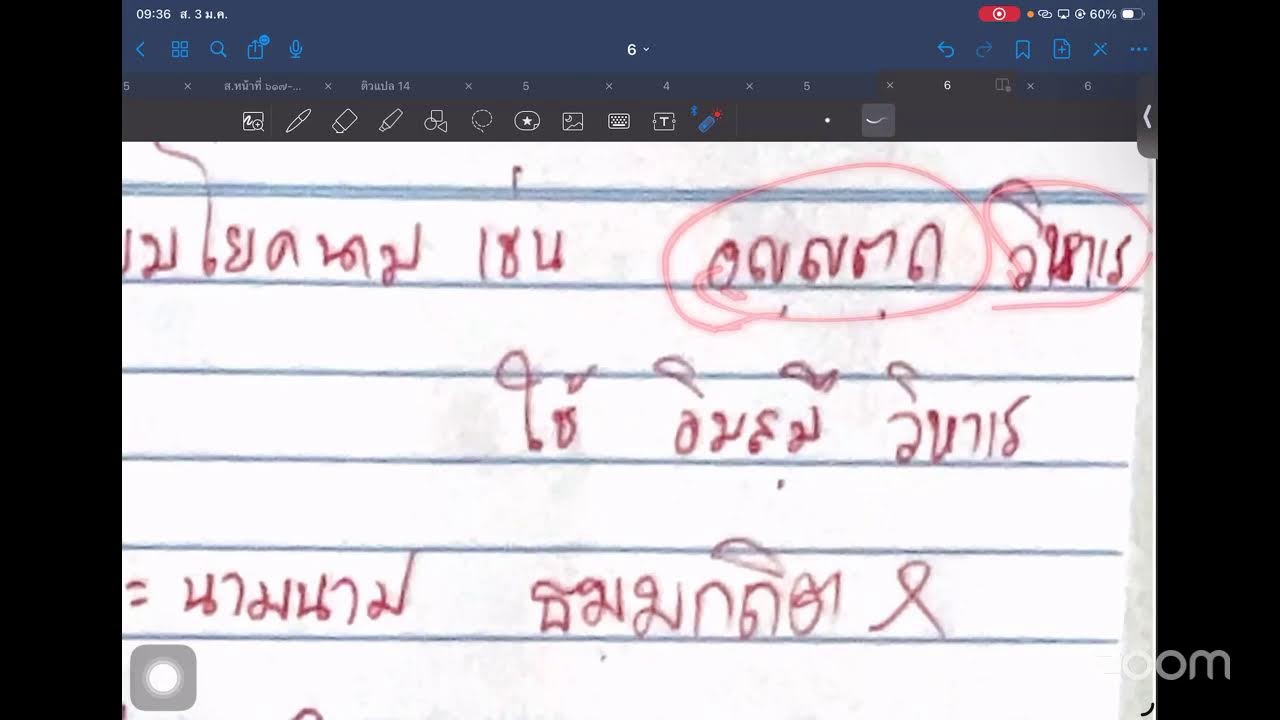 09:36 ส. 3 ม.ค. 60%
6
5 ส.หน้าที่ ๖๑๗-... ติวแปล 14 5 4 5 6 6
โยคนาม เช่น อญฺญตฺร วิหาเร
ใช้ อิมสฺมึ วิหาเร
= นามนาม ธมฺมกถิกา
zoom